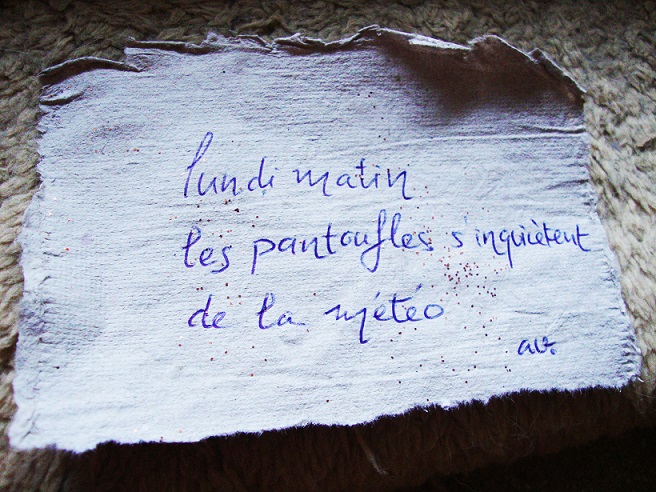 lundi matin
les pantoufles s'inquiètent
de la météo
av.